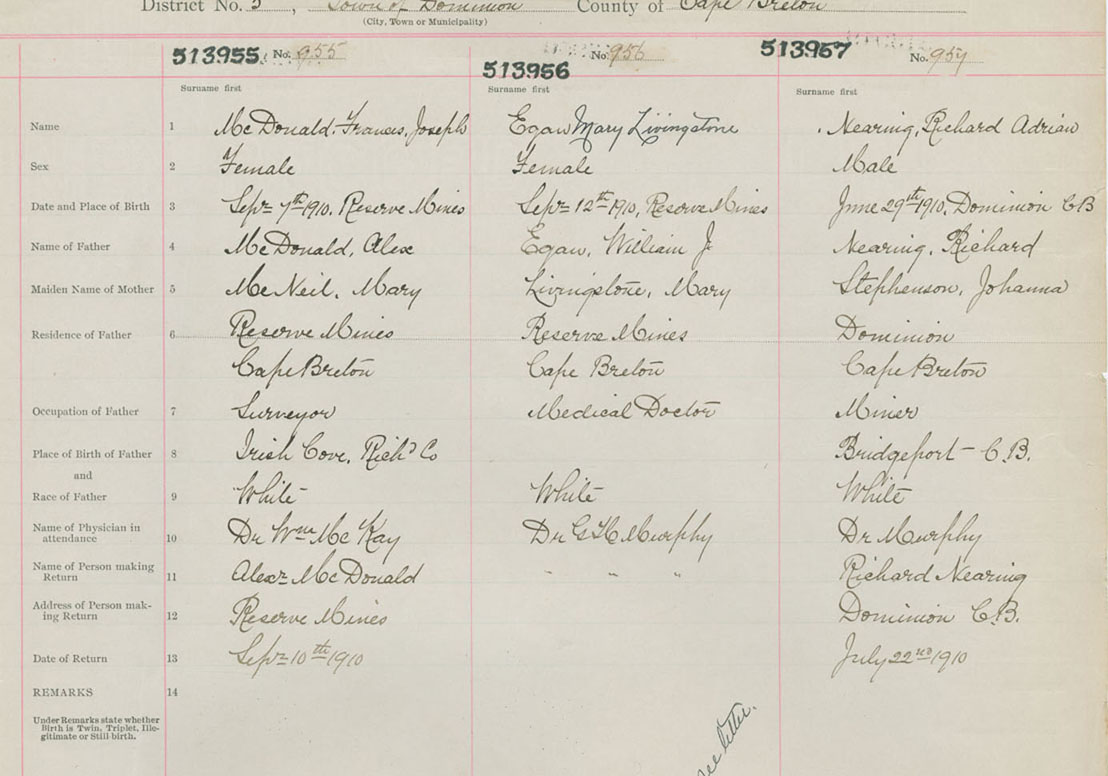 District No. 5, Town of Dominion County of Cape Breton
(City, Town or Municipality)
513955 No. 955
513956 No. 956
513957 No. 957
Surname first Surname first Surname first
Name 1 McDonald, Francis, Joseph Egan Mary Livingstone Nearing, Richard Adrian
Sex 2 Female Female Male
Date and Place of Birth 3 Sept 7th 1910, Reserve Mines Sept 12th 1910, Reserve Mines June 29th 1910, Dominion C.B
Name of Father 4 McDonald, Alex Egan, William J Nearing, Richard
Maiden Name of Mother 5 McNeil, Mary Livingstone, Mary Stephenson, Johanna
Residence of Father 6 Reserve Mines Reserve Mines Dominion
Cape Breton Cape Breton Cape Breton
Occupation of Father 7 Surveyor Medical Doctor Miner
Place of Birth of Father 8 Irish Cove, Richd Co Bridgeport - C.B.
and
Race of Father 9 White White White
Name of Physician in
attendance 10 Dr Wm McKay Dr G H Murphy Dr Murphy
Name of Person making
Return 11 Alexr McDonald " " " Richard Nearing
Address of Person mak-
ing Return 12 Reserve Mines Dominion C.B.
Date of Return 13 Sept 10th 1910 July 22nd 1910
REMARKS 14
Under Remarks state whether
Birth is Twin, Triplet, Ille-
gitimate or Still-birth.
see letter.